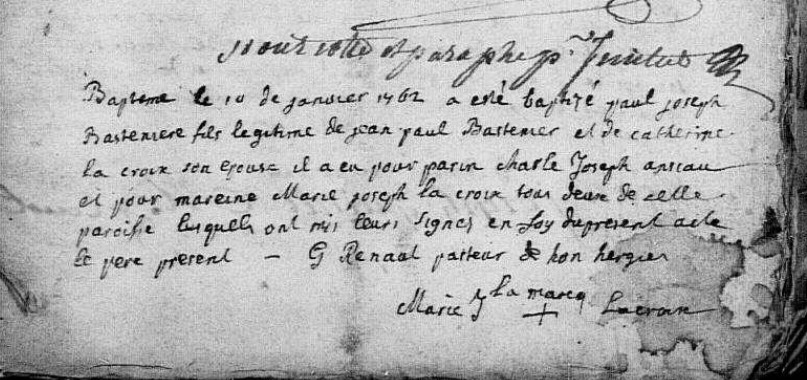 cotté et paraphé pr
Bapteme le 10 de janvier 1762 a esté baptizé paul joseph
Basteniere fils legitime de jean paul Bastenier et de catherine
la croix son epouse il a eu pour parin charle Joseph anciau
et pour mareine Marie joseph la croix tous deux de cette
paroisse lesquels ont mis leurs signes en foy dupresent acte
le pere present – G Renaal pasteur de hon hergies
Marie J la marcq + Lacroix